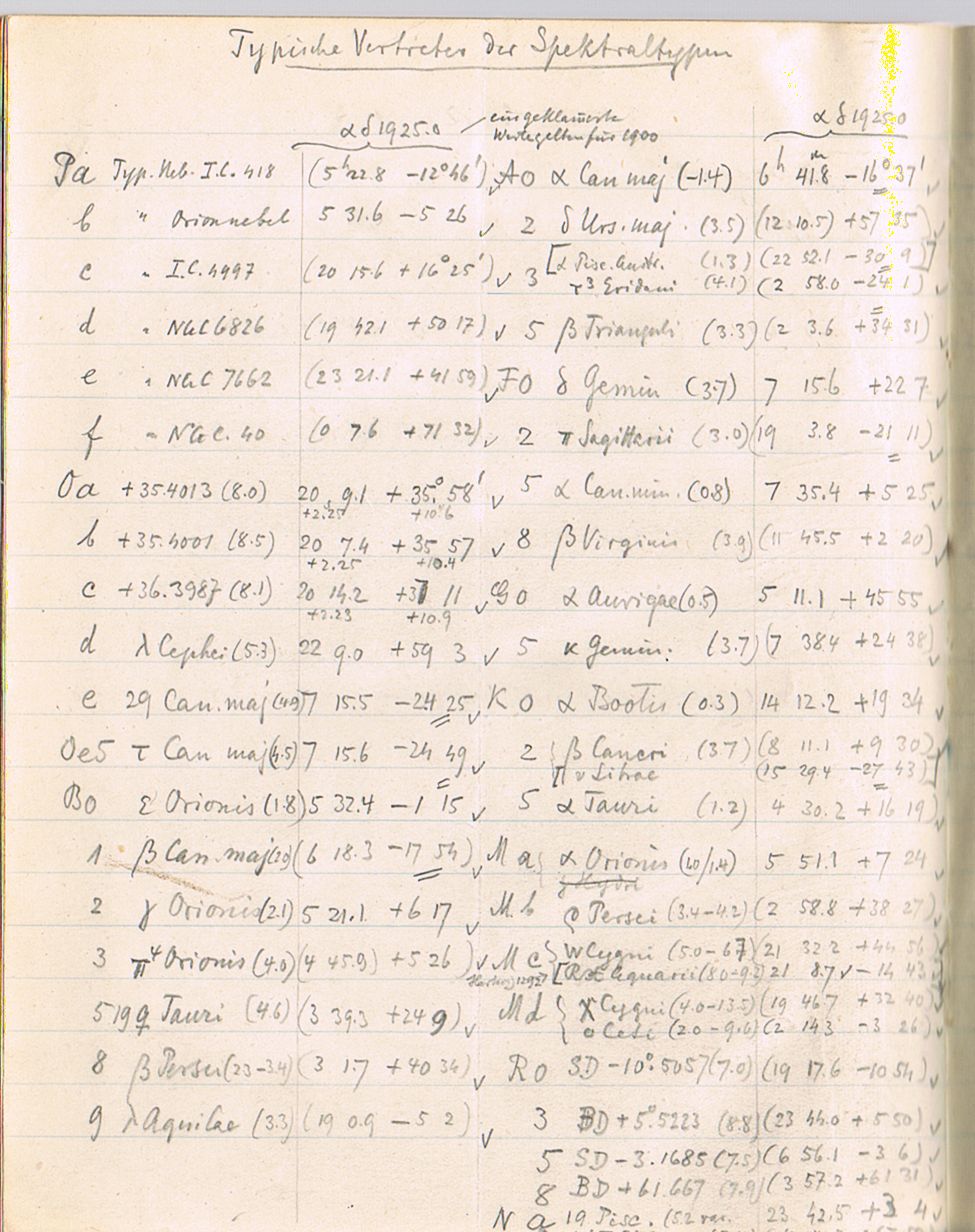 Typische Vertreter der Spektraltypen
α δ 1925.0
eingeklammerte
Werte gelten für 1900
α δ 1925.0
Pa Typ. Neb. I.C. 418 (5h 22.8 -12°46') ✓ A0 α Can maj (-1.4) 6h 41.8m -16°37' ✓
b " Orionnebel 5 31.6 -5 26 ✓ 2 δ Urs. maj. (3.5) (12 10.5) +57 35) ✓
c " I.C. 4997 (20 15.6 +16°25') ✓ 3 [α Pisc. Austr. (1.3) (22 52.1 -30 9)]
τ³ Eridani (4.1) (2 58.0 -24 1) ✓
d " NGC 6826 (19 42.1 +50 17) ✓ 5 β Trianguli (3.3) (2 3.6 +34 31) ✓
e " NGC 7662 (23 21.1 +41 59) ✓ F0 δ Gemin (3.7) 7 15.6 +22 7 ✓
f " NGC. 40 (0 7.6 +71 32) ✓ 2 π Sagittarii (3.0) (19 3.8 -21 11) ✓
Oa +35.4013 (8.0) 20 9.1 +35° 58' ✓ 5 α Can. min. (0.8) 7 35.4 +5 25 ✓
+2.25 +10.6
b +35.4001 (8.5) 20 7.4 +35 57 ✓ 8 β Virginis (3.9) (11 45.5 +2 20) ✓
+2.25 +10.4
c +36.3987 (8.1) 20 14.2 +37 11 ✓ G0 α Aurigae (0.5) 5 11.1 +45 55 ✓
+2.23 +10.9
d λ Cephei (5.3) 22 9.0 +59 3 ✓ 5 κ Gemin. (3.7) (7 38.4 +24 38) ✓
e 29 Can. maj (4.9) 7 15.5 -24 25 ✓ K 0 α Bootis (0.3) 14 12.2 +19 34 ✓
Oe5 τ Can maj (4.5) 7 15.6 -24 49 ✓ 2 { β Cancri (3.7) (8 11.1 +9 30)
υ Librae (15 29.4 -27 43)] ✓
B0 ε Orionis (1.8) 5 32.4 -1 15 ✓ 5 α Tauri (1.2) 4 30.2 +16 19) ✓
1 β Can. maj (2.0) (6 18.3 -17 54) ✓ M a { α Orionis (1.0/1.4) 5 51.1 +7 24
2 γ Orionis (2.1) 5 21.1 +6 17 ✓ M. b ρ Persei (3.4-4.2) (2 58.8 +38 27) ✓
3 π⁴ Orionis (4.0) (4 45.9) +5 26 ) ✓ M c } W Cygni (5.0-6.7) (21 32.2 +44 56)
Aquarii (8.0-9.2) 21 8.7 ✓ -14 43
5 19 q Tauri (4.6) (3 39.3 +24 9) ✓ M d { χ Cygni (4.0-13.5) (19 46.7 +32 40)
ο Ceti (2.0-9.6) (2 14.3 -3 26) ✓
8 β Persei (2.3-3.4) (3 1.7 +40 34) ✓ R 0 SD -10°.5057 (7.0) (19 17.6 -10 54) ✓
9 λ Aquilae (3.3) (19 0.9 -5 2) ✓ 3 BD +5°.5223 (8.8) (23 44.0 +5 50) ✓
5 SD -3.1685 (7.5) (6 56.1 -3 6) ✓
8 BD +61.667 (7.9) (3 57.2 +61 31) ✓
N a 19 Pisc. (5.2 var. 23 42.5 +3 4 ✓